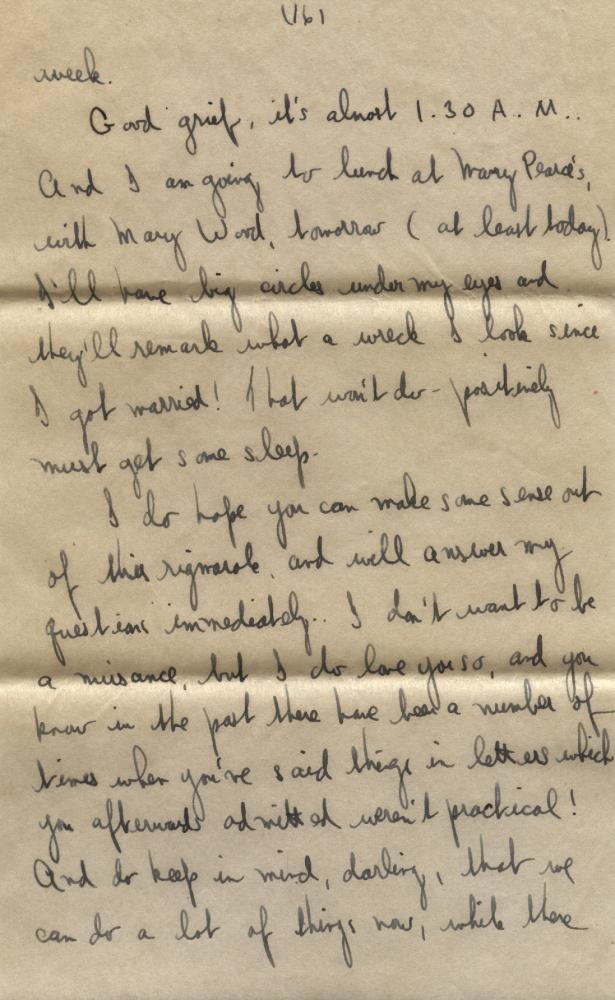 week.
Good grief, it's almost 1.30 A.M..
And I am going to lunch at Mary Pearce's,
with Mary Wood, tomorrow (at least today).
I'll have big circles under my eyes and
they'll remark what a wreck I look since
I got married! That won't do - positively
must get some sleep.
I do hope you can make some sense out
of this rigmarole, and will answer my
questions immediately.. I don't want to be
a nuisance, but I do love you so, and you
know in the past there have been a number of
times when you've said things in letters which
you afterwards admitted weren't practical!
And do keep in mind, darling, that we
can do a lot of things now, while there